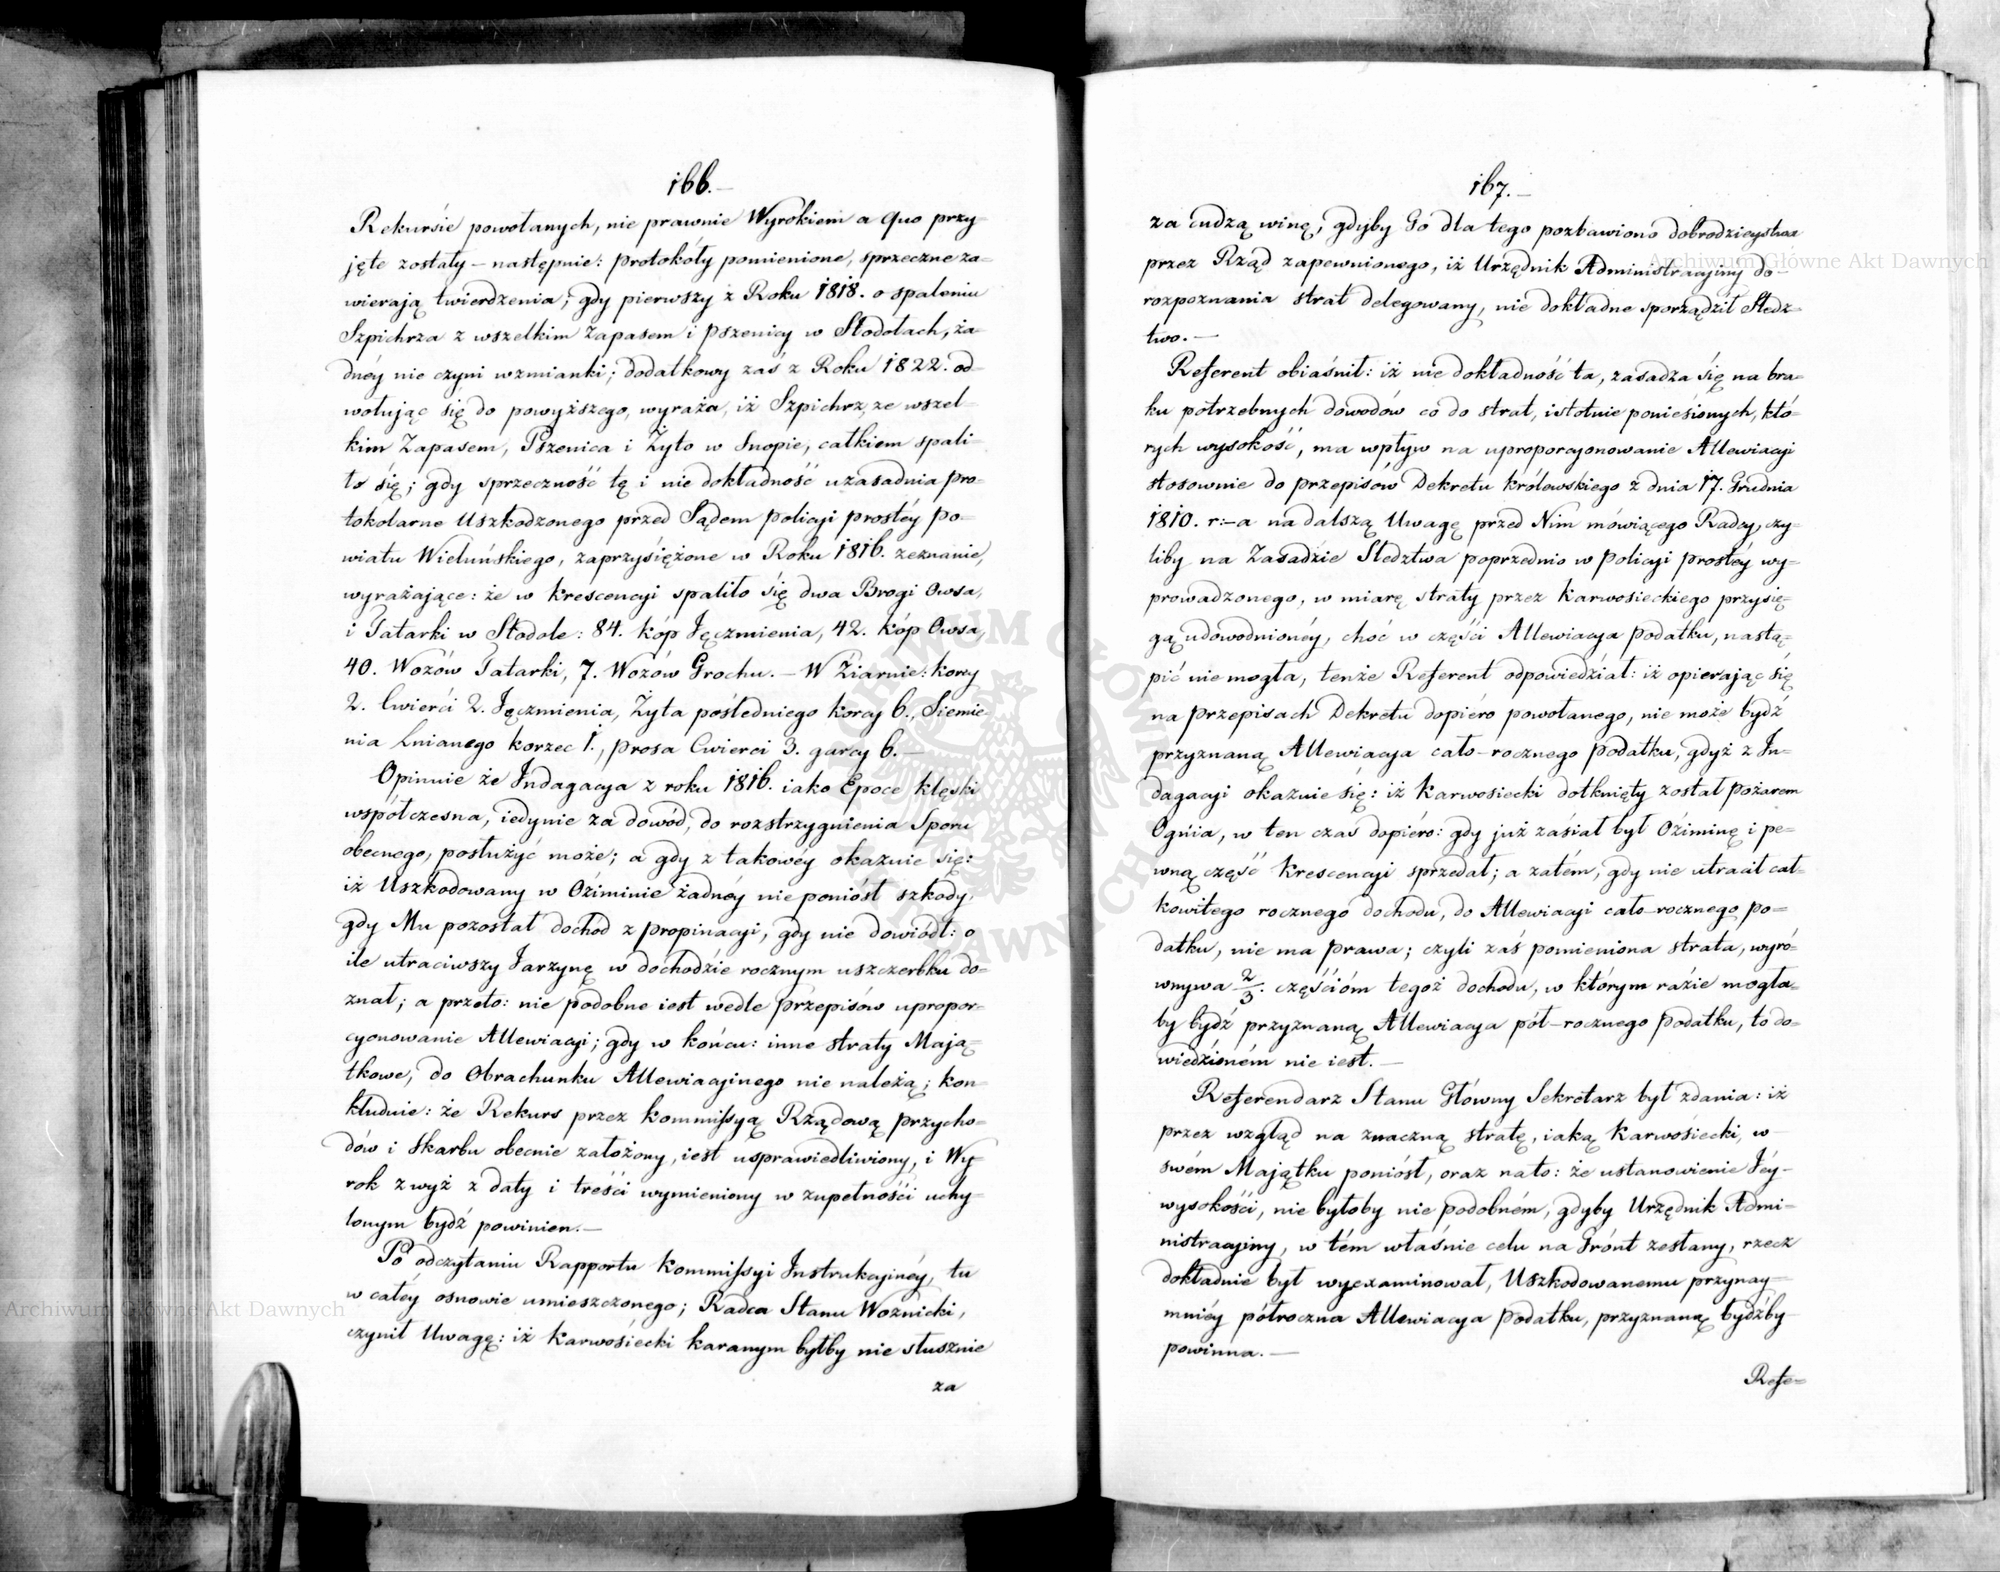 166.
Rekursie powołanych, nie prawnie Wyrokiem a quo przy=
jęte zostały – następnie: protokóły pomienione, sprzeczne za=
wierają twierdzenia; gdy pierwszy z Roku 1818. o spaleniu
Szpichrza z wszelkim Zapasem i pszenicy w Stodołach, ża=
dnéy nie czyni wzmianki; dodatkowy zaś z Roku 1822. od=
wołując się do powyższego, wyraża, iż Szpichrz, ze wszel=
kim Zapasem, Pszenica i Żyto w Snopie, całkiem spali=
ło się; gdy sprzeczność tę i nie dokładność uzasadnia pro=
tokolarne Uszkodzonego przed Sądem policyi prostéy Po=
wiatu Wieluńskiego, zaprzysiężone w Roku 1816. zeznanie,
wyrażające: że w krescencyi spaliło się dwa Brogi Owsa,
i Tatarki w Stodole: 84. kóp Jęczmienia, 42. kóp Owsa,
40. Wozów Tatarki, 7. Wozów Grochu. – W Ziarnie: korcy
2. Cwierci 2. Jęczmienia, Żyta pośledniego korcy 6., Siemie=
nia lnianego korzec 1., prosa Cwierci 3. garcy 6. –
Opinuie że Indagacya z roku 1816. iako Epoce klęski
współczesna, iedynie za dowód, do rozstrzygnienia Sporu
obecnego, posłużyć może; a gdy z takowey okazuie się:
iż Uszkodowany w Oźiminie żadnéy nie poniósł szkody,
gdy Mu pozostał dochód z propinacyi, gdy nie dowiódł: o
ile utraciwszy Jarzynę w dochodzie rocznym uszczerbku do=
znał; a przeto: nie podobne iest wedle przepisów upropor=
cyonowanie Allewiacyi; gdy w końcu: inne straty Mają=
tkowe, do Obrachunku Allewiacyinego nie należą; kon=
kluduie: że Rekurs przez kommissyą Rządową przycho=
dów i Skarbu obecnie założony, iest usprawiedliwiony, i Wy=
rok zwyż z daty i treści wymieniony w zupełności uchy=
lonym bydź powinien. –
Po odczytaniu Rapportu Kommissyi Instrukcyinéy, tu
w całéy osnowie umieszczonego; Radca Stanu Woznicki,
czynił Uwagę: iż Karwosiecki karanym byłby nie słusznie
za
167.
za cudzą winę, gdyby Go dla tego pozbawiono dobrodzieystwa
przez Rząd zapewnionego, iż Urzędnik Administracyiny do=
rozpoznania strat delegowany, nie dokładne sporządził Sledz=
two. –
Referent obiaśnił: iż nie dokładność ta, zasadza się na bra=
ku potrzebnych dowodów co do strat, istotnie poniesionych, któ=
rych wysokość, ma wpływ na uproporcyonowanie Allewiacyi
stosownie do przepisów Dekretu królewskiego z dnia 17. Grudnia
1810. r: – a na dalszą Uwagę przed Nim mówiącego Radcy, czy=
liby na Zasadzie Sledztwa poprzednio w Policyi prostéy wy=
prowadzonego, w miarę straty przez Karwosieckiego przysię=
gą udowodnionéy, choć w części Allewiacya podatku, nastą=
pić nie mogła, tenże Referent odpowiedział: iż opierając się
na przepisach Dekretu dopiéro powołanego, nie może bydź
przyznaną Allewiacya cało-rocznego podatku, gdyż z In=
dagacyi okazuie się: iż Karwosiecki dotknięty został pożarem
Ognia, w ten czas dopiéro: gdy już zasiał był Oźiminę i pe=
wną część krescencyi sprzedał; a zatém, gdy nie utracił cał=
kowitego rocznego dochodu, do Allewiacyi cało-rocznego po=
datku, nie ma prawa; czyli zaś pomieniona strata, wyró=
wnywa 2/3. częścióm tegoż dochodu, w którym razie mogła=
by bydź przyznaną Allewiacya pół-rocznego podatku, to do=
wiedzioném nie iest. –
Referendarz Stanu Główny Sekretarz był zdania: iż
przez wzgląd na znaczną stratę, iaką Karwosiecki, w
swém Majątku poniósł, oraz nato: że ustanowienie Jéy-
wysokości, nie byłoby nie podobném, gdyby Urzędnik Admi=
nistracyiny, w tém właśnie celu na Grónt zesłany, rzecz
dokładnie był wyexaminował, Uszkodowanemu przynay=
mniéy półroczna Allewiacya podatku, przyznaną bydźby
powinna. –
Refe=
Archiwum Główne Akt Dawnych
Archiwum Główne Akt Dawnych
ARCHIWUM GŁÓWNE AKT DAWNYCH